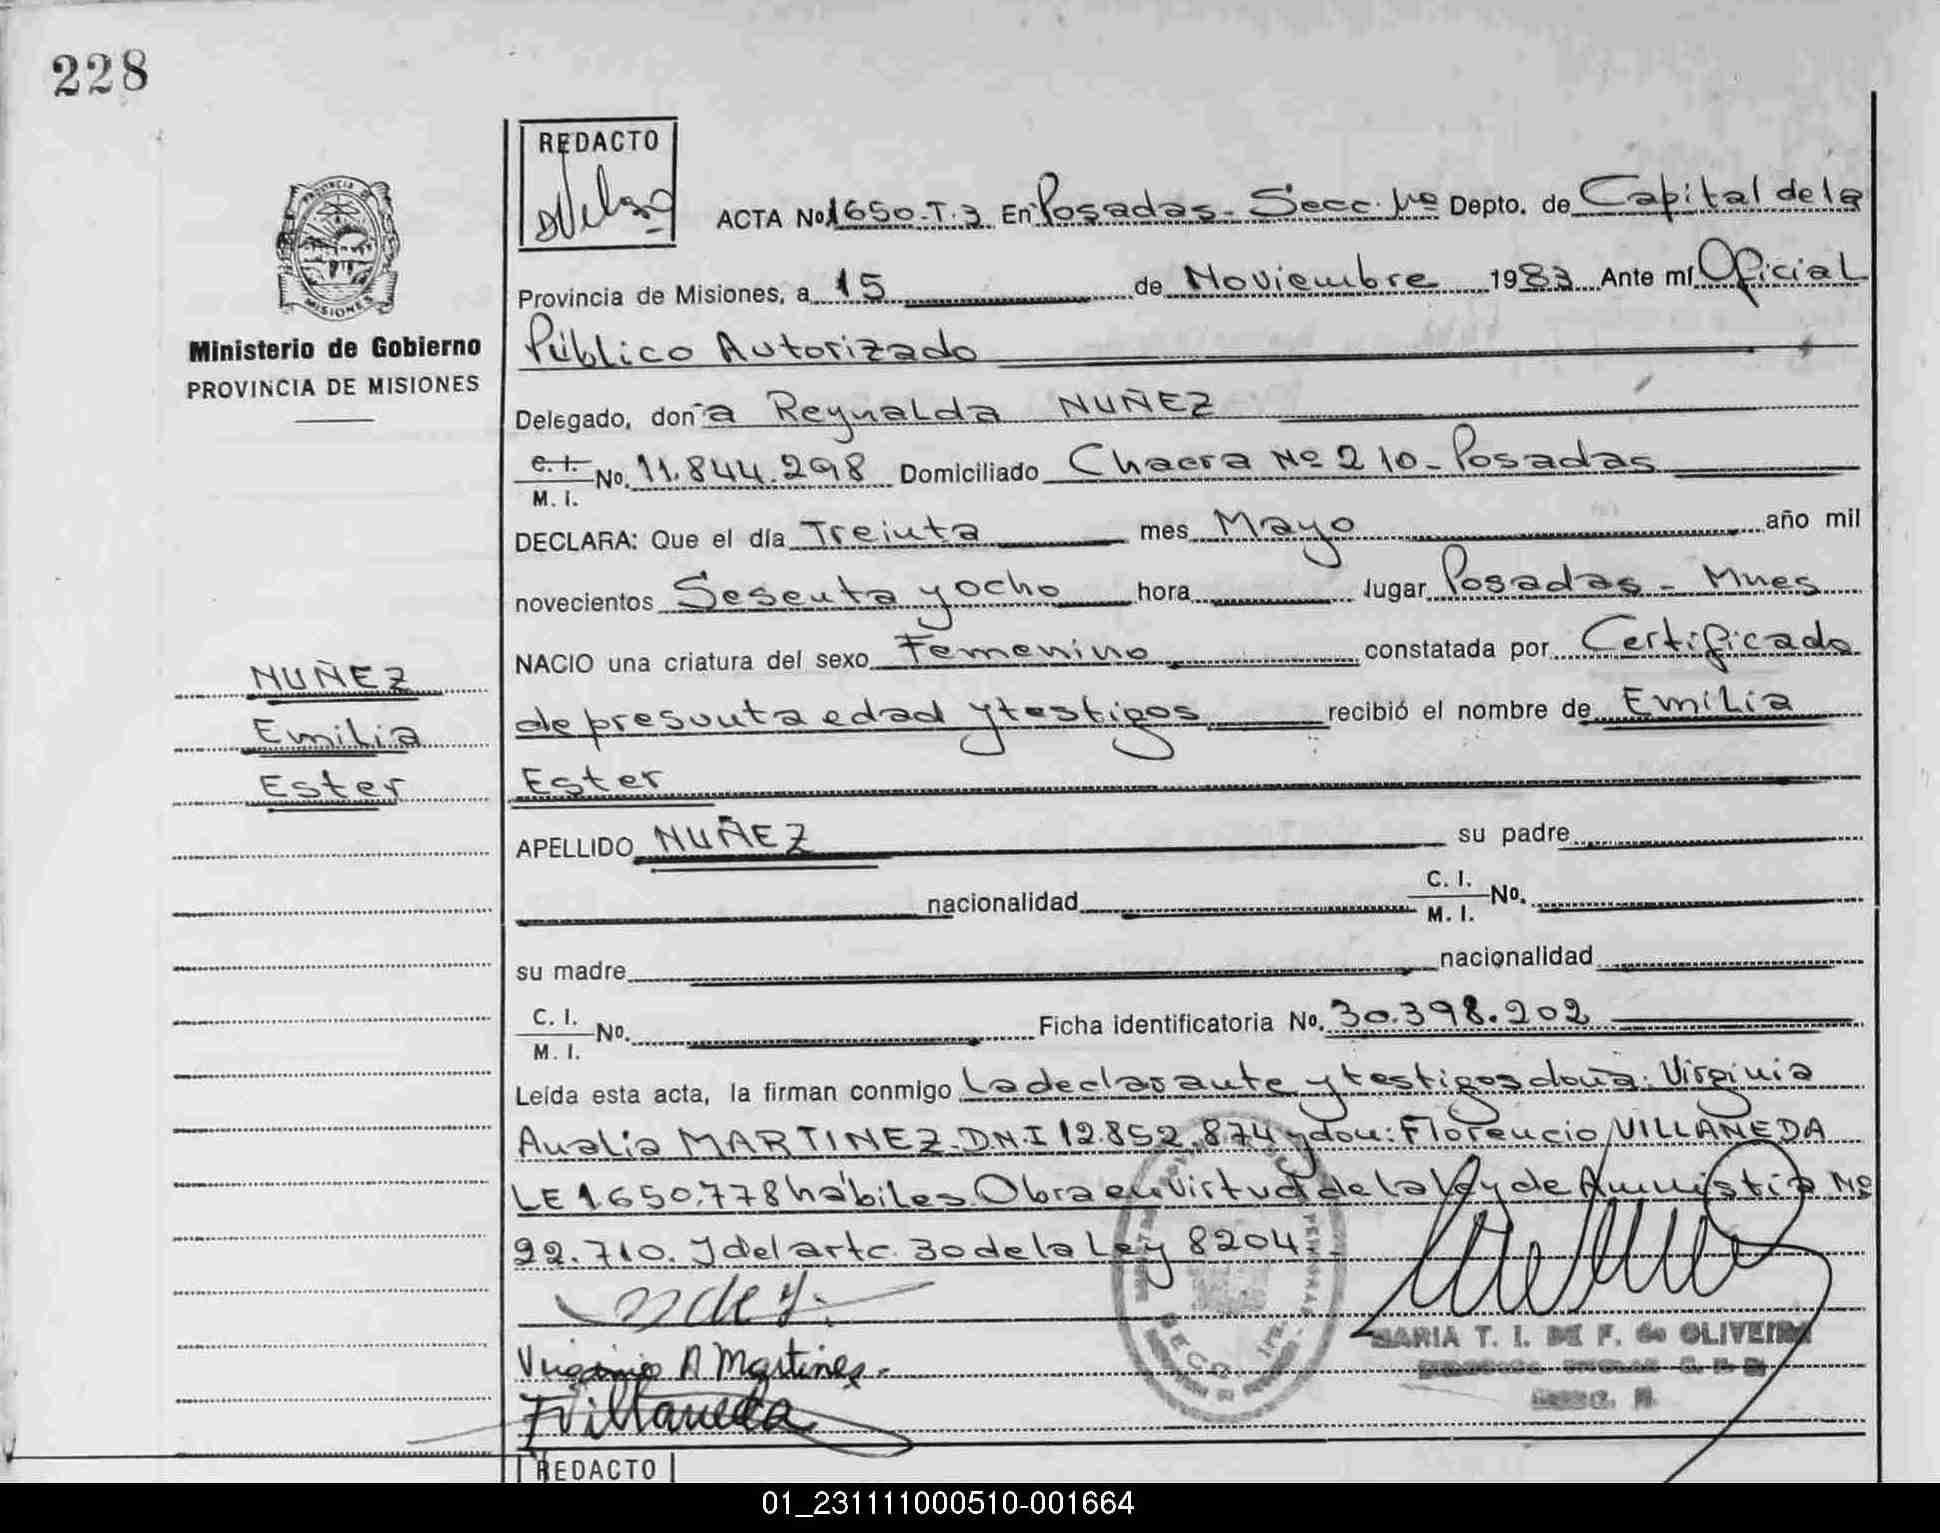 228
REDACTO
ACTA No 1650-T.3 En Posadas-Secc. 1ra Depto. de Capital de la
Provincia de Misiones, a 15 de Noviembre 1983 Ante mí Oficial
Público Autorizado
Delegado, doña Reynalda NUÑEZ
C. I. M. I. No. 11.844.298 Domiciliado Chacra Nº 210-Posadas
DECLARA: Que el día Treinta mes Mayo año mil
novecientos Sesenta y ocho hora lugar Posadas - Mnes
NACIO una criatura del sexo Femenino constatada por Certificado
de presunta edad y testigos recibió el nombre de Emilia
Ester
APELLIDO NUÑEZ su padre
nacionalidad C. I. M. I. No.
su madre nacionalidad
C. I. M. I. No. Ficha identificatoria No. 30.398.202
Leída esta acta, la firman conmigo La declarante y testigos doña: Virginia
Analia MARTINEZ-D.N.I 12.852.874 y don: Florencio VILLANEDA
LE 1.650.778 hábiles. Obra en virtud de la Ley de Amnistia Nº
22.710. Y del artc. 30 de la Ley 8204
Virginia A Martines
FVillaneda
MARIA T. I. DE F. de OLIVEIRA
REDACTO
PROVINCIA DE MISIONES
Ministerio de Gobierno
PROVINCIA DE MISIONES
NUÑEZ
Emilia
Ester
01_231111000510-001664